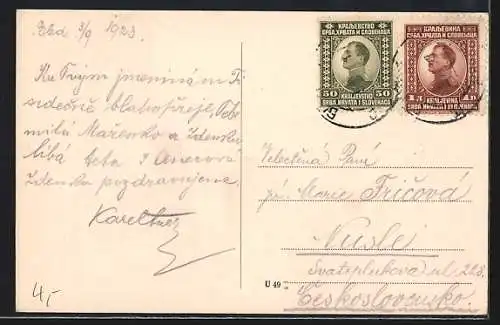 Bled 3/9 1923
Ku Tvým jmeninám Ti
srdečně blahopřeje, Tebe
milá Mařenko a Zdenku
líbá teta
Zdenka pozdravujeme.
Karel
КРАЉЕВСТВО
СРБА, ХРВАТА И СЛОВЕНАЦА
50 50
KRALJEVSTVO
SRBA, HRVATA I SLOVENACA
КРАЉЕВИНА
СРБА, ХРВАТА И СЛОВЕНАЦА
KRALJEVINA
Velectěná Paní
pí. Marie Fričová
Nusle
Svatoplukova ul. 228.
Československo.
U 49
4,-